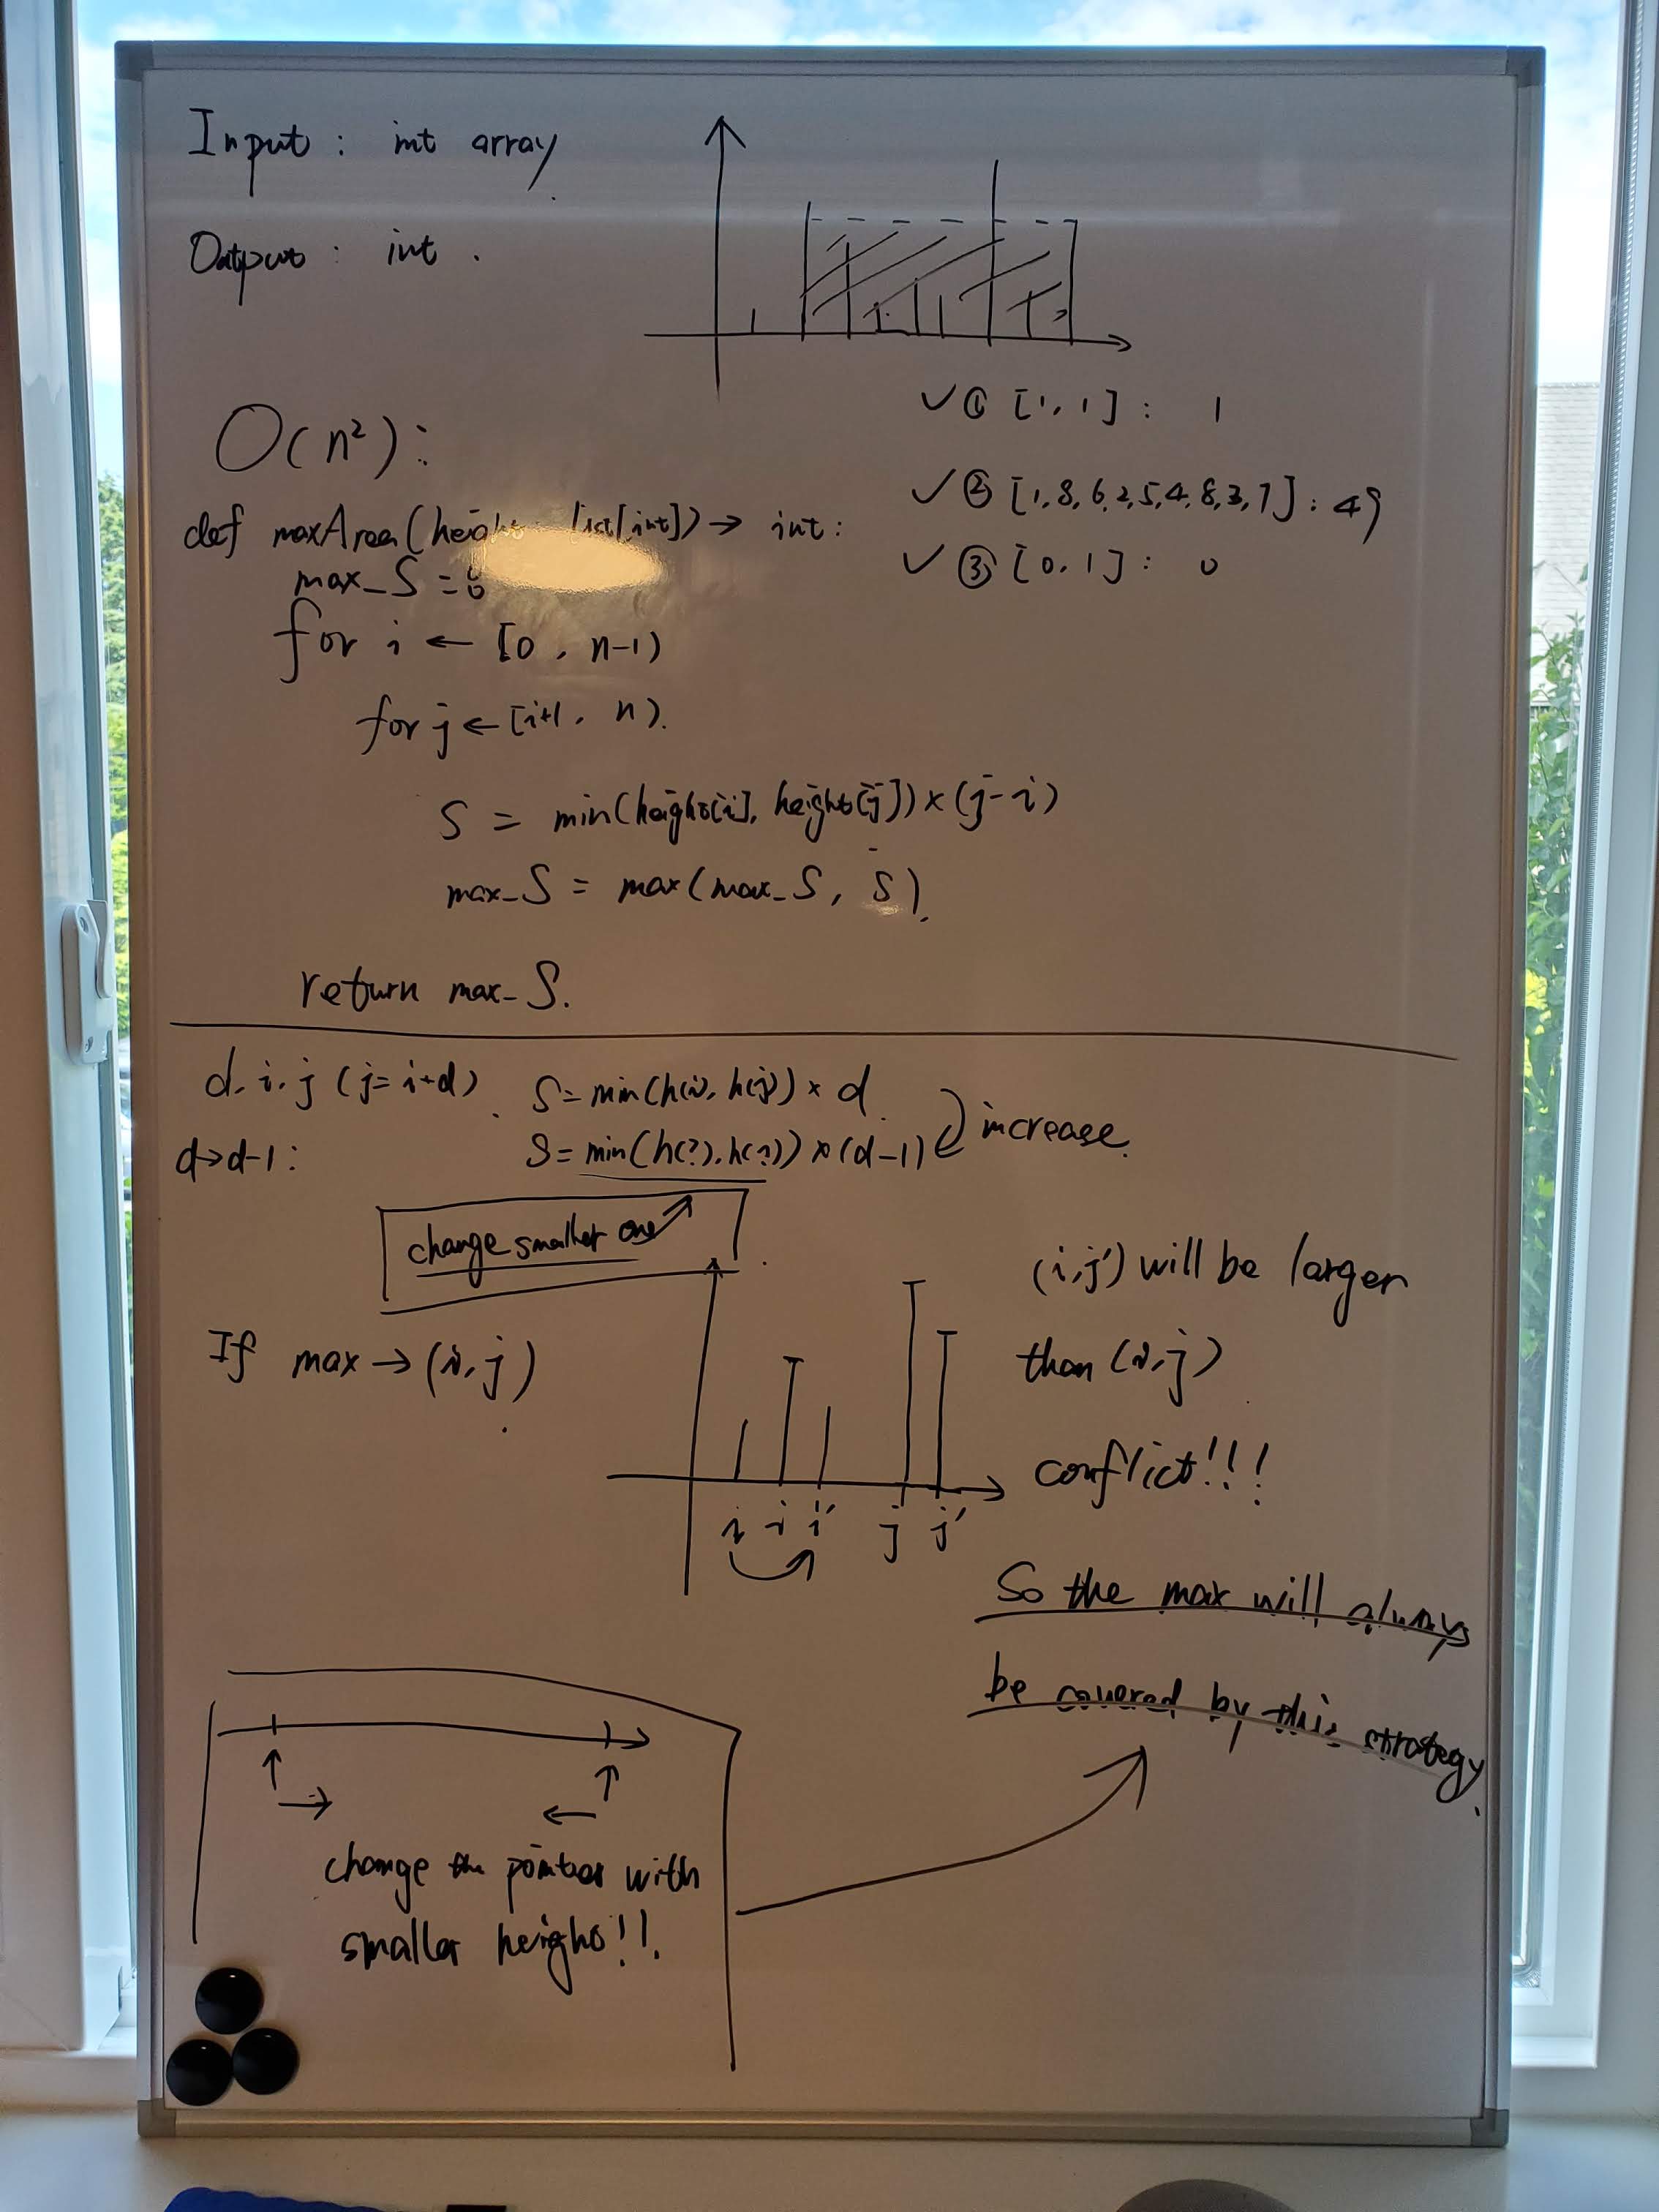 Input : int array
Output : int .
① [1, 1] : 1
② [1,8,6,2,5,4,8,3,7] : 49
③ [0, 1] : 0
O(n²) :
def maxArea(height: list[int]) → int:
max_S = 0
for i ← [0, n-1)
for j ← [i+1, n).
S = min(height[i], height[j]) × (j-i)
max_S = max(max_S, S).
return max_S.
d, i, j (j=i+d). S = min(h(i), h(j)) × d.
d→d-1: S = min(h(?), h(?)) × (d-1) increase.
change smaller one
If max → (i, j)
(i,j') will be larger
than (i,j)
conflict!!!
i i i' j j'
So the max will always
be covered by this strategy.
change the pointer with
smaller height!!.